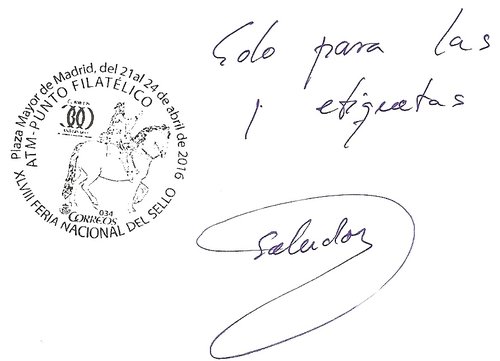 Plaza Mayor de Madrid, del 21 al 24 de abril de 2016
ATM-PUNTO FILATÉLICO
CORREOS
034
CORREOS
XLVIII FERIA NACIONAL DEL SELLO
Solo para las
etiquetas
Saludos